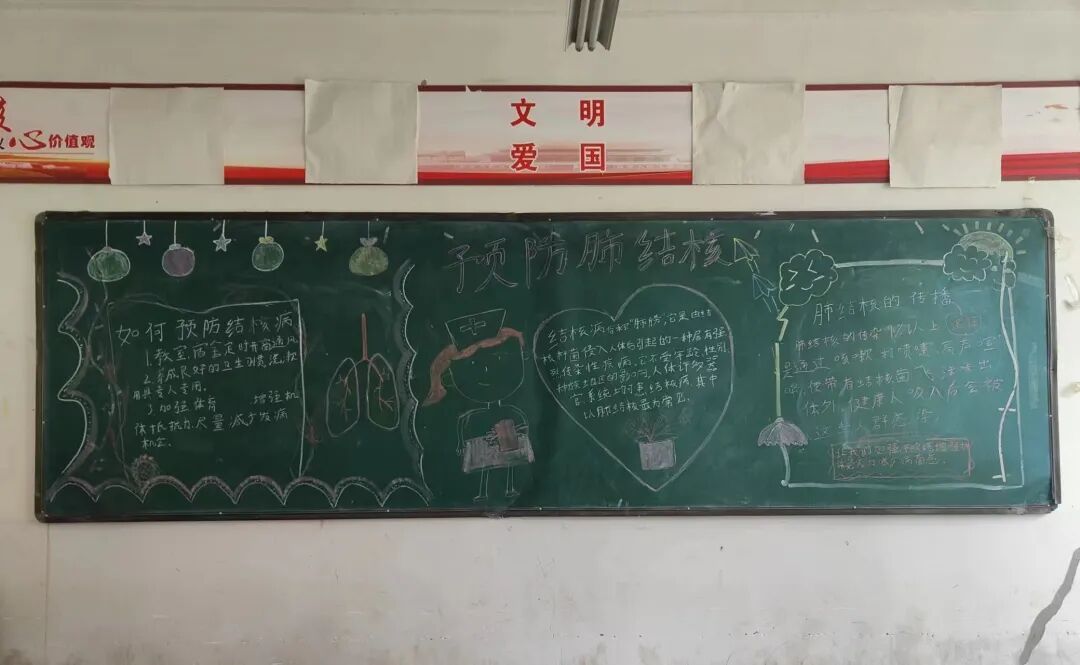 心价值观
文 明
爱 国
预防肺结核
如何预防结核病
1.教室、宿舍定时开窗通风
2.养成良好的卫生习惯,
用具专人专用。
3加强体育 增强机
体抵抗力,尽量减少发病
机会。
结核病俗称"肺痨",它是由结
核杆菌侵入人体后引起的一种具有强
烈传染性疾病。它不受年龄、性别、
种族、地区的影响,人体许多器
官、系统均可患结核病,其中
以肺结核最为常见。
肺结核的传播
肺结核的传染 以上
通过 咳嗽 打喷嚏
便带有结核菌飞沫
体外,健康人吸入后会被
这 人群感染